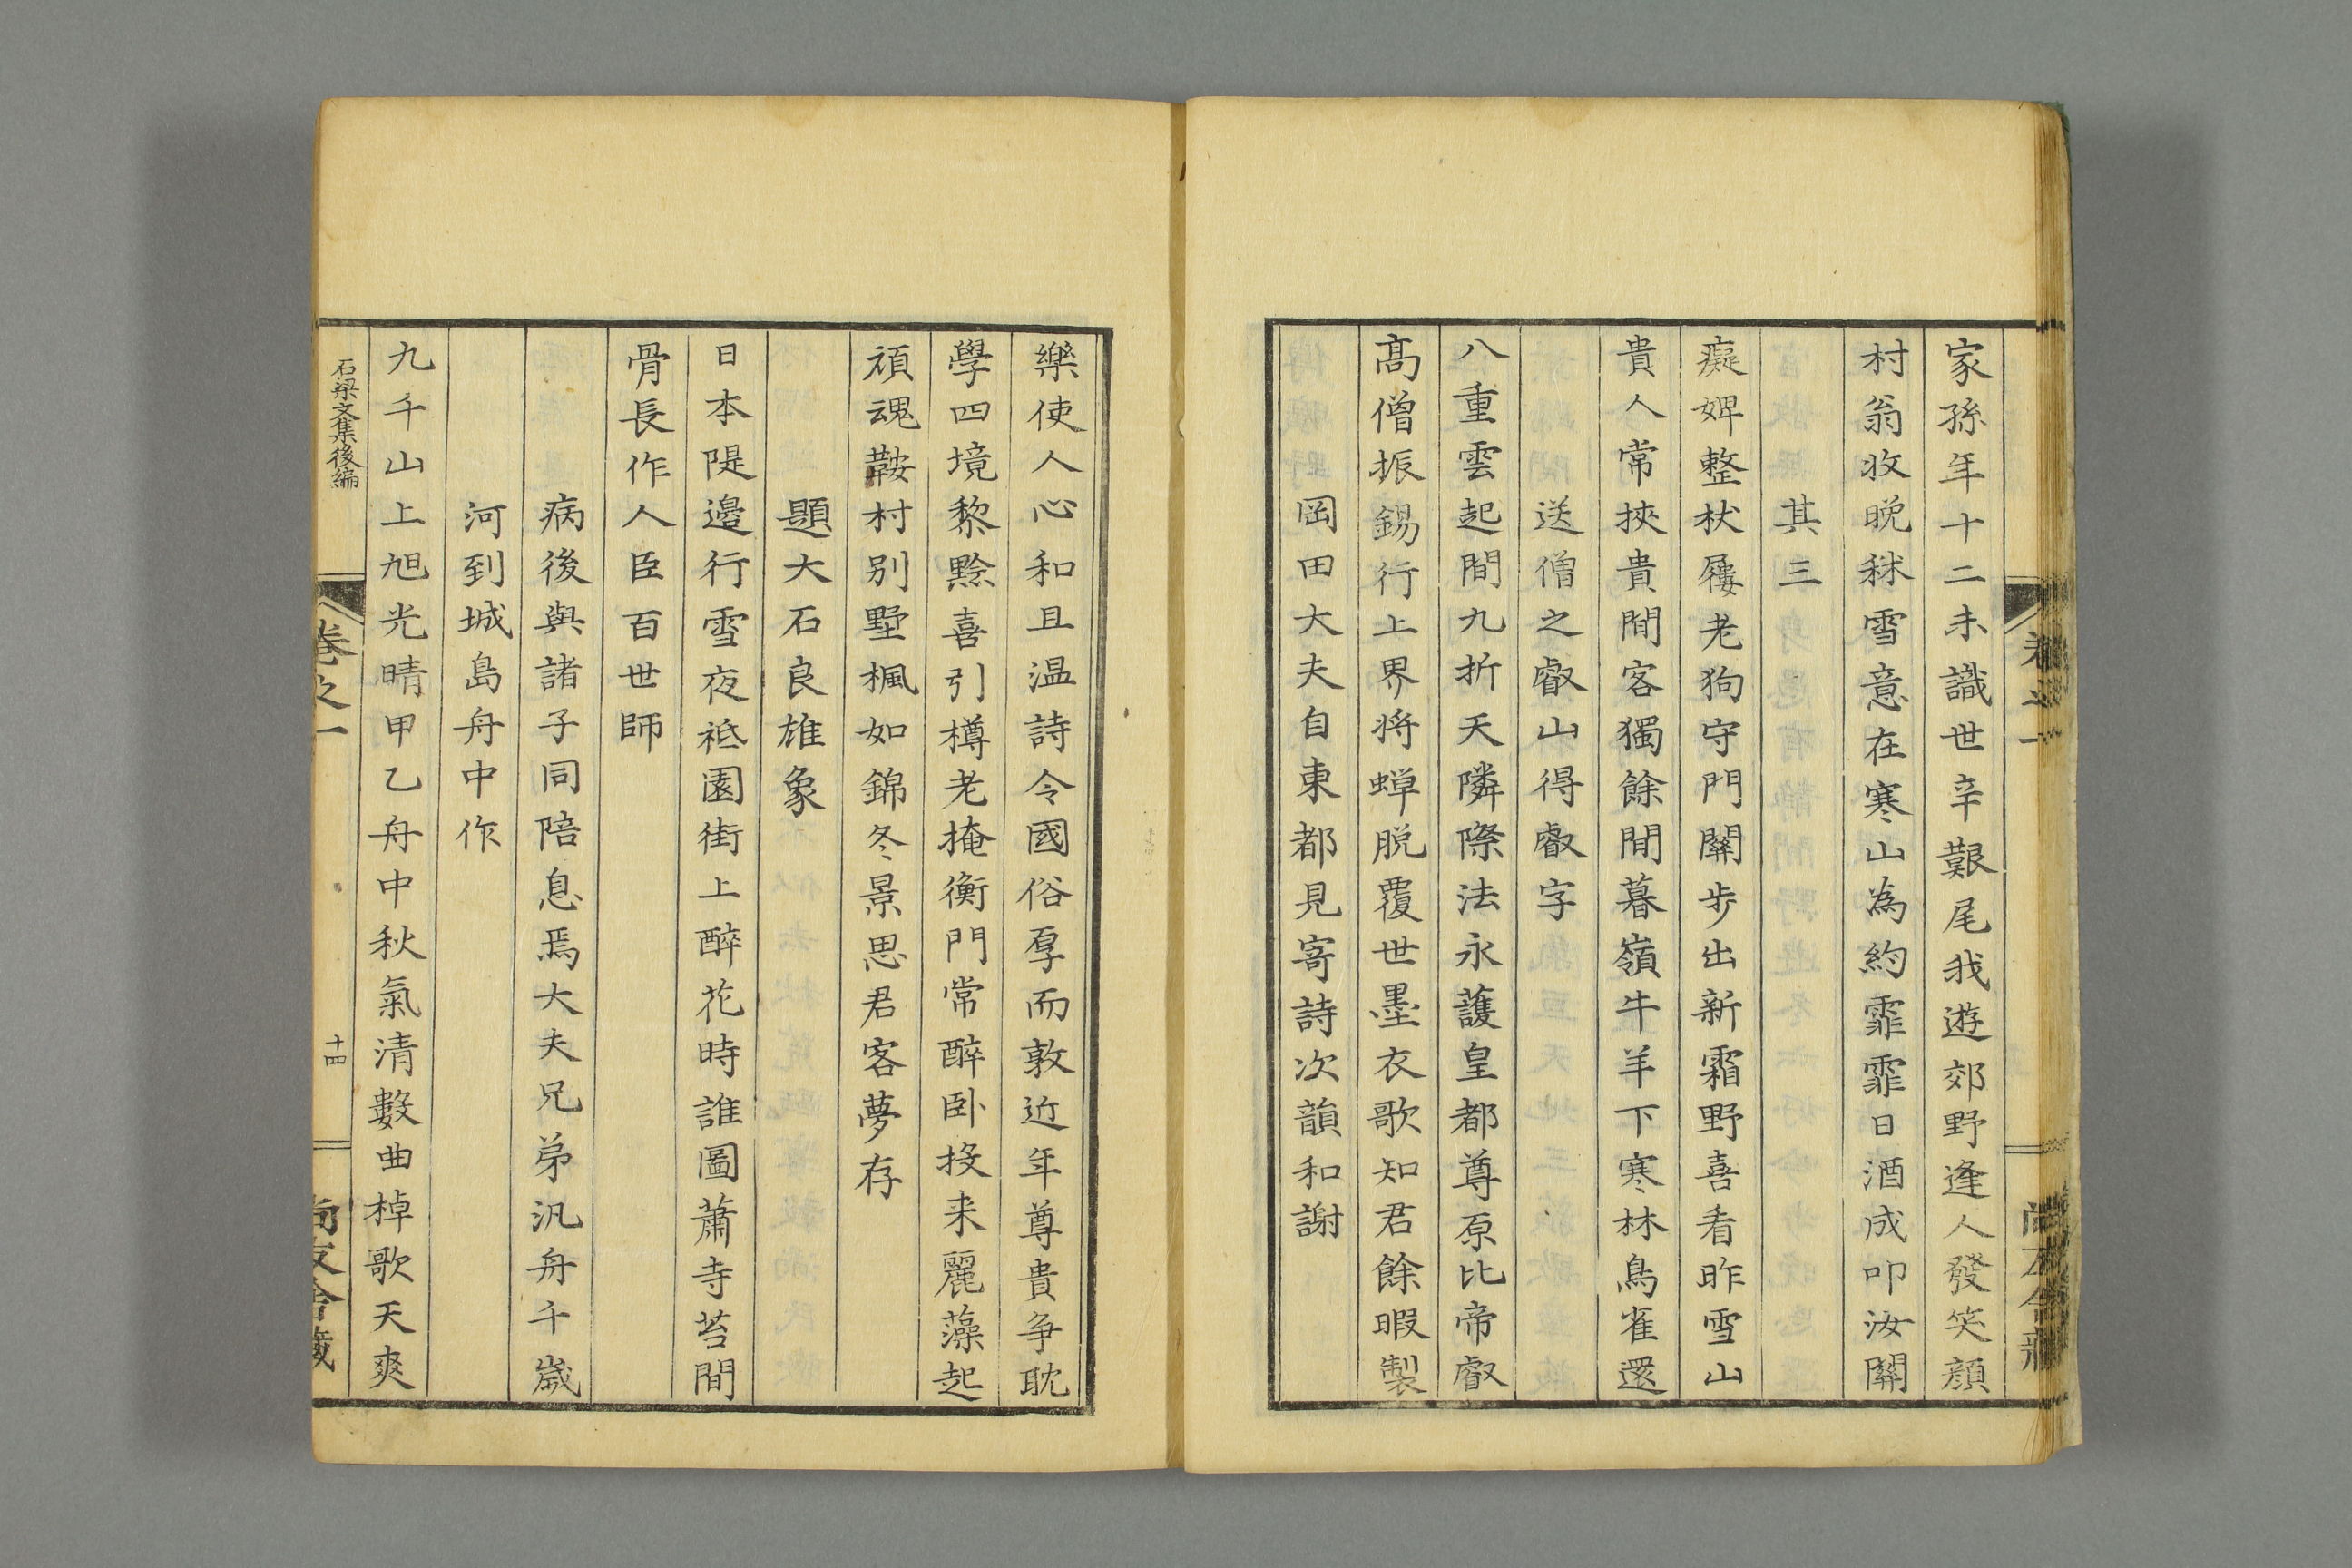 家孫年十二未識世辛艱尾我遊郊野逢人發笑顔
村翁收晚秫雪意在寒山為約霏霏日酒成叩汝關
其三
癡婢整杖屨老狗守門關步出新霜野喜看昨雪山
貴人常挾貴間客獨餘間暮嶺牛羊下寒林鳥雀還
送僧之叡山得叡字
八重雲起間九折天隣際法永護皇都尊原比帝叡
高僧振錫行上界将蝉脱覆世墨衣歌知君餘暇製
岡田大夫自東都見寄詩次韻和謝
樂使人心和且温詩令國俗厚而敦近年尊貴争耽
學四境黎黔喜引樽老掩衡門常醉卧投来麗藻起
頑魂鞍村别墅楓如錦冬景思君客夢存
題大石良雄象
日本隄邊行雪夜祗園街上醉花時誰圖蕭寺苔間
骨長作人臣百世師
病後與諸子同陪息焉大夫兄弟汎舟千歳
河到城島舟中作
九千山上旭光晴甲乙舟中秋氣清數曲棹歌天爽
石梁文集後編
卷之一
十四
尚友舍藏